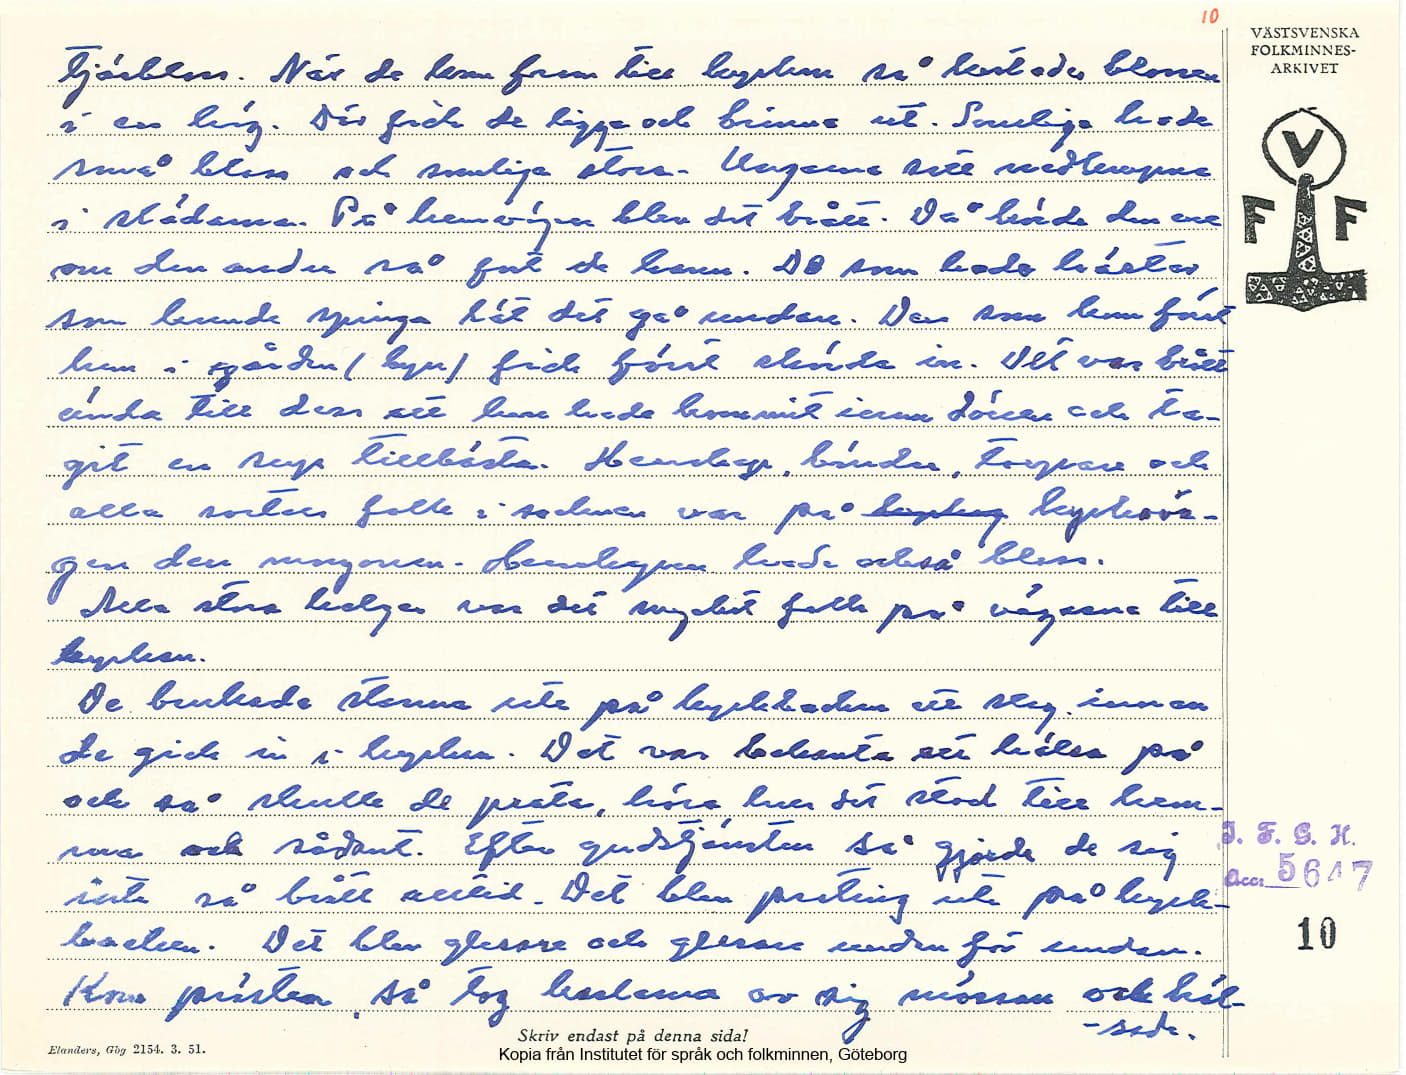 10
VÄSTSVENSKA
FOLKMINNES-
ARKIVET
V
F F
tjärbloss. När de kom fram till kyrkan så kastades blossen
i en hög. Där fick de ligga och brinna ut. Somliga hade
små bloss och somliga stora. Ungarna satt nedkrupna
i slädarna. På hemvägen blev det brått. Då körde den ene
om den andre så fort de kunn. De som hade hästar
som kunde springa lät det gå undan. Den som kom först
hem i gården (byn) fick först skörda in. Det var brått
ända till dess att han hade kommit inom dörren och ta-
git en sup tillbästa. Herrskap, bönder, torpare och
alla sorters folk i socknen var på kyrkovä-
gen den morgonen. Herrskapen hade också bloss.
Alla stora helger var det mycket folk på vägarna till
kyrkan.
De brukade stanna ute på kyrkbacken ett slag innan
de gick in i kyrkan. Det var bekanta att hälsa på
och så skulle de prata, höra hur det stod till hem-
ma och sådant. Efter gudstjänsten så gjorde de sig
inte så brått alltid. Det blev prating ute på kyrk-
backen. Det blev glesare och glesare undan för undan.
Kom prästen, så tog karlarna av sig mössan och häl-
-sade.
I. F. G. H.
Acc. 5647
10
Skriv endast på denna sida!
Elanders, Gbg 2154. 3. 51.
Kopia från Institutet för språk och folkminnen, Göteborg